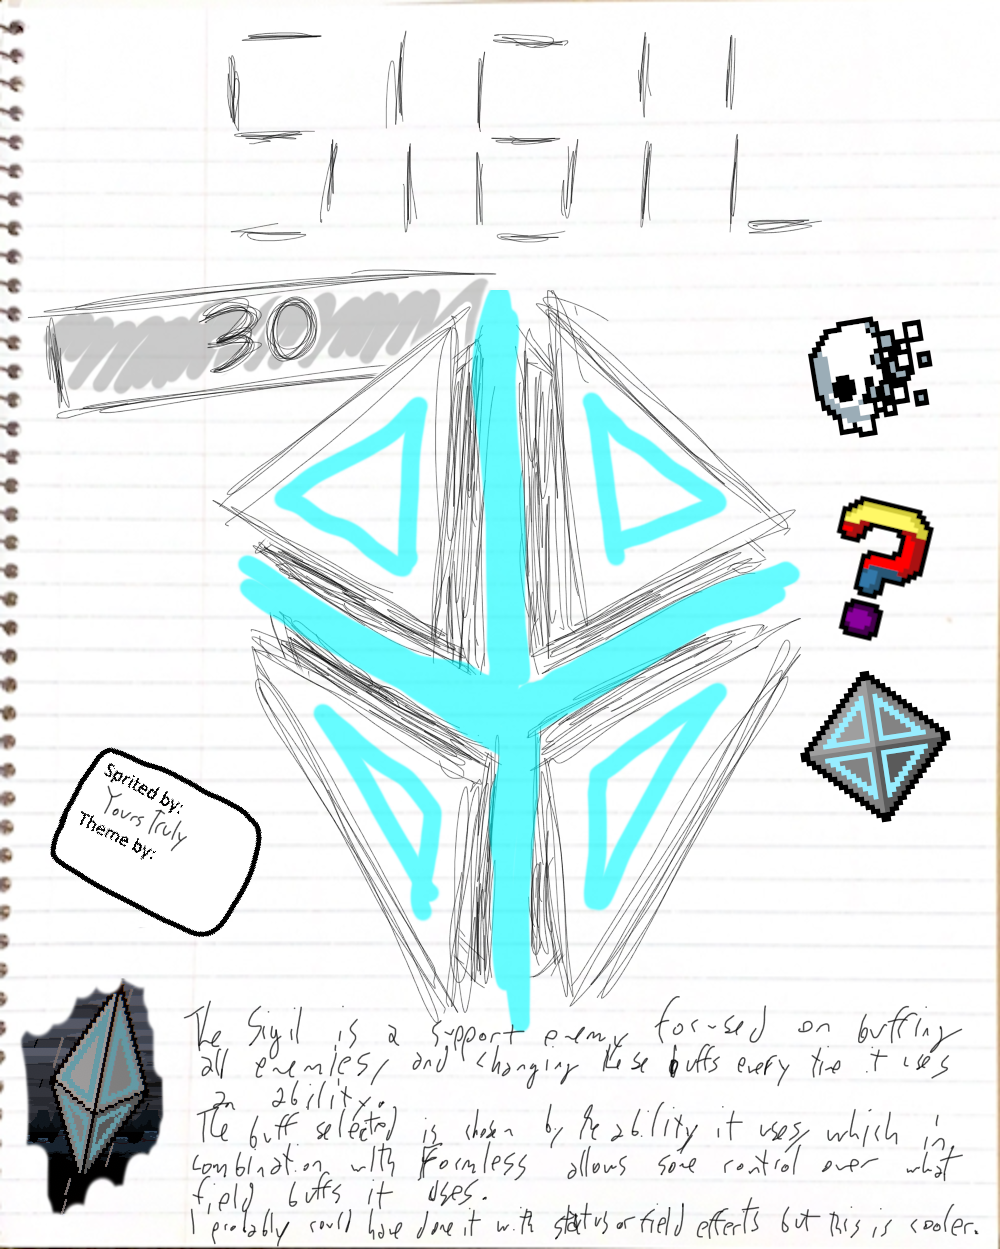 SIGIL
30
Sprited by:
Yours Truly
Theme by:
The Sigil is a support enemy focused on buffing
all enemies, and changing these buffs every time it uses
an ability.
The buff selected is chosen by the ability it uses, which in
combination with Formless allows some control over what
field buffs it uses.
I probably could have done it with status or field effects but this is cooler.